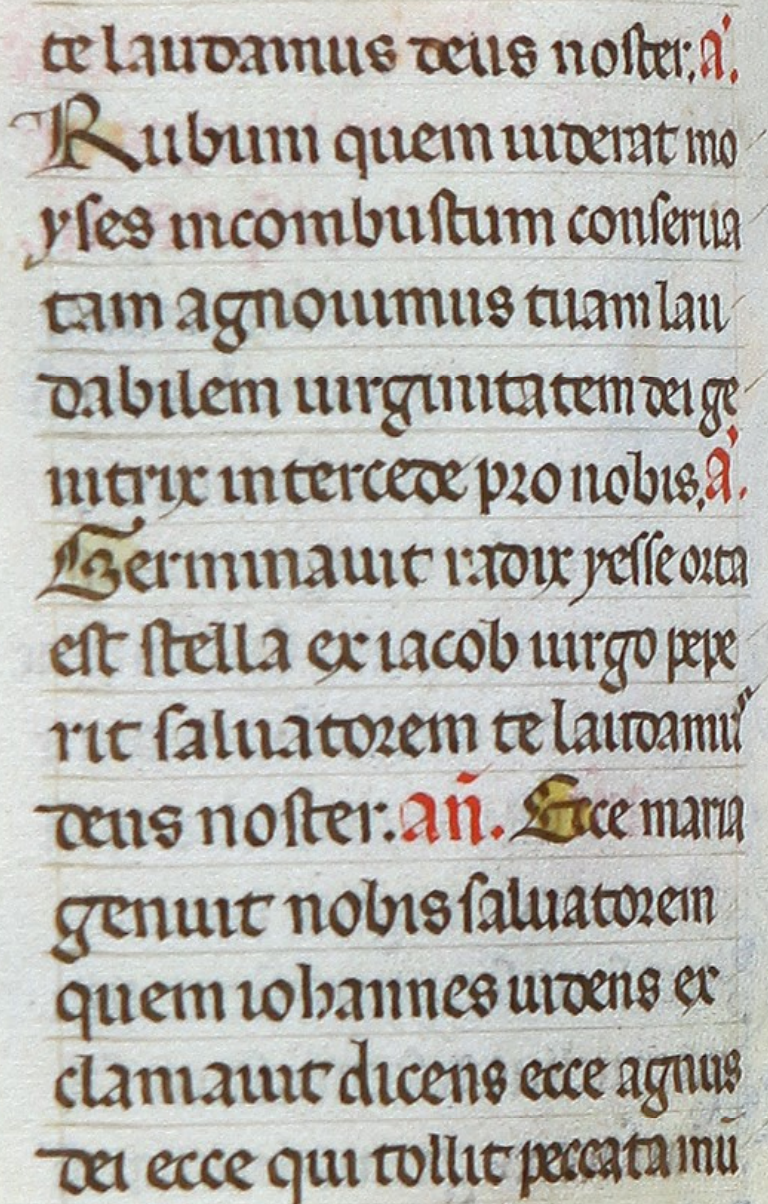 te laudamus deus noster. a.
Rubum quem uiderat mo
yses incombustum conserua
tam agnouimus tuam lau
dabilem uirginitatem dei ge
nitrix intercede pro nobis. a.
Germinauit radix yesse orta
est stella ex iacob uirgo pepe
rit saluatorem te laudamus
deus noster. an̄. Ecce maria
genuit nobis saluatorem
quem iohannes uidens ex
clamauit dicens ecce agnus
dei ecce qui tollit peccata mū